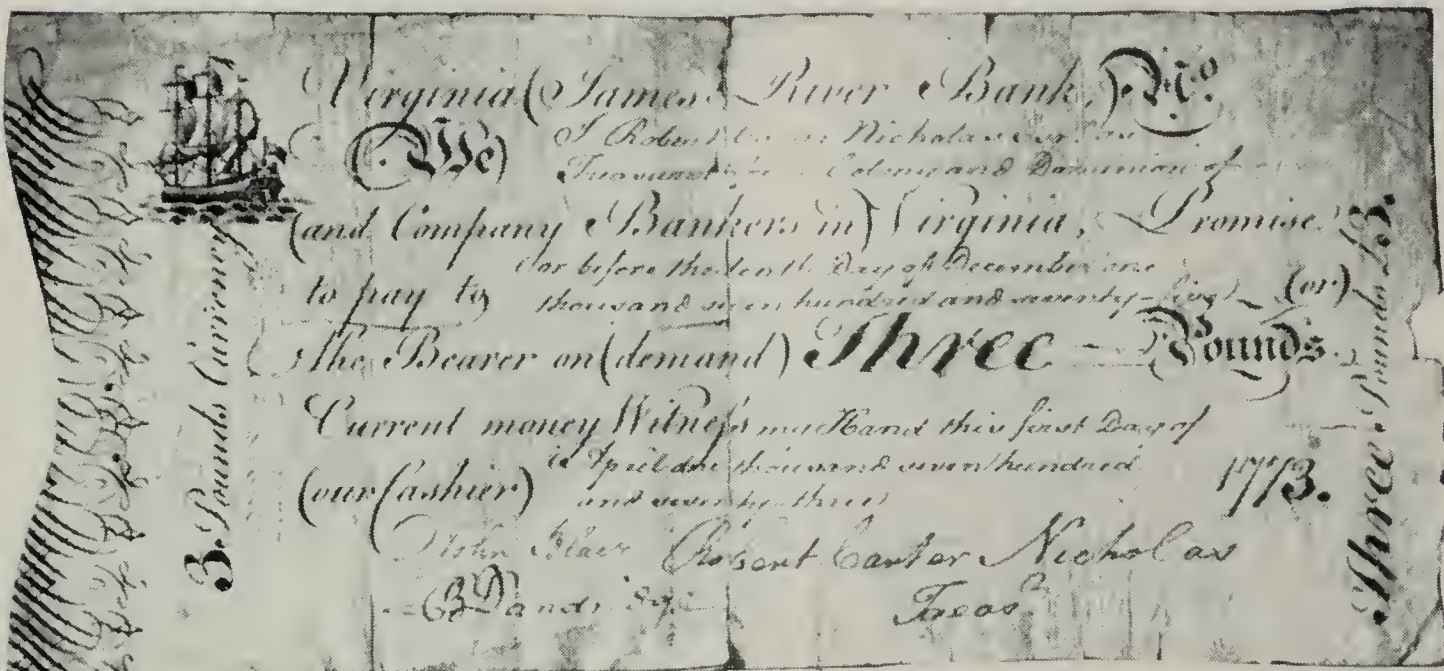 Virginia (James River Bank,) No.
(We) I Robert Nicholas
Colony and Dominion of
(and Company Bankers in) Virginia, Promise
or before the tenth Day of December one
to pay to thousand seven hundred and seventy-five (or)
the Bearer on (demand) Three Pounds
Current money Witness my Hand this first Day of
April one thousand seven hundred
(our Cashier) and seventy-three 1773.
John Blair Robert Carter Nicholas
Treasr.
3. Pounds Currency
Three Pounds £3.